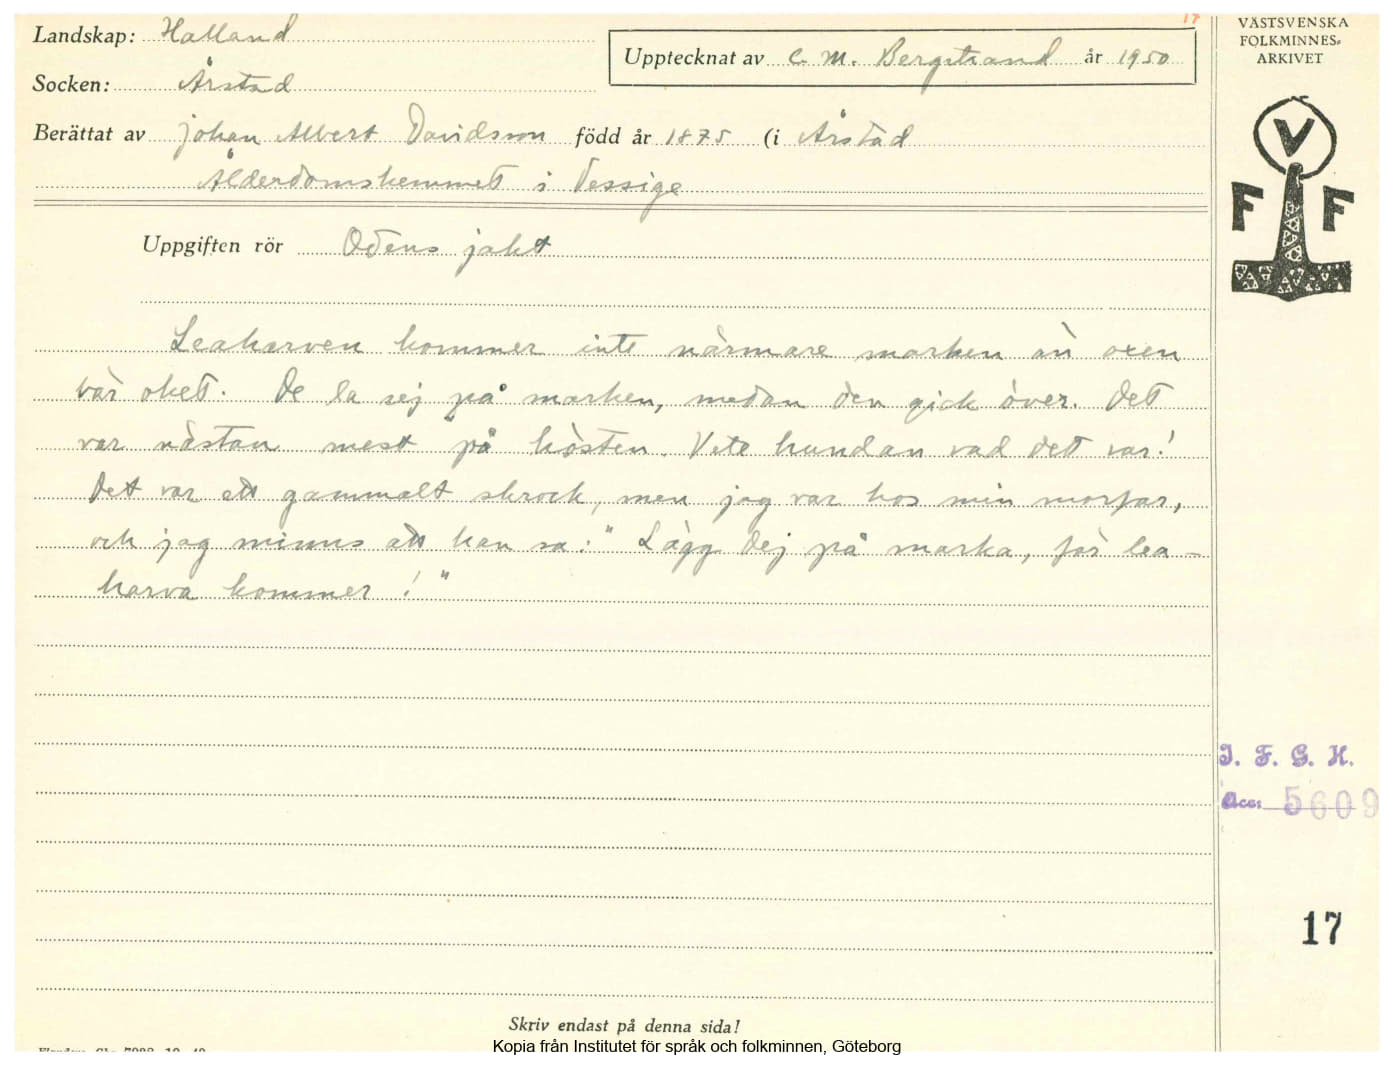 17
Landskap: Halland
Upptecknat av C. M. Bergstrand år 1950
Socken: Årstad
Berättat av Johan Albert Davidsson född år 1875 (i Årstad
Ålderdomshemmet i Vessige
VÄSTSVENSKA
FOLKMINNES-
ARKIVET
V
F F
Uppgiften rör Odens jakt
Leaharven kommer inte närmare marken än oxen
bär oket. De la sej på marken, medan den gick över. Det
var nästan mest på hösten. Vete hundan vad dett var!
Det var ett gammalt skrock, men jag var hos min morfar,
och jag minns att han sa: "Lägg dej på marka, för lea-
harva kommer!"
I. F. G. H.
Acc: 5609
17
Skriv endast på denna sida!
Kopia från Institutet för språk och folkminnen, Göteborg